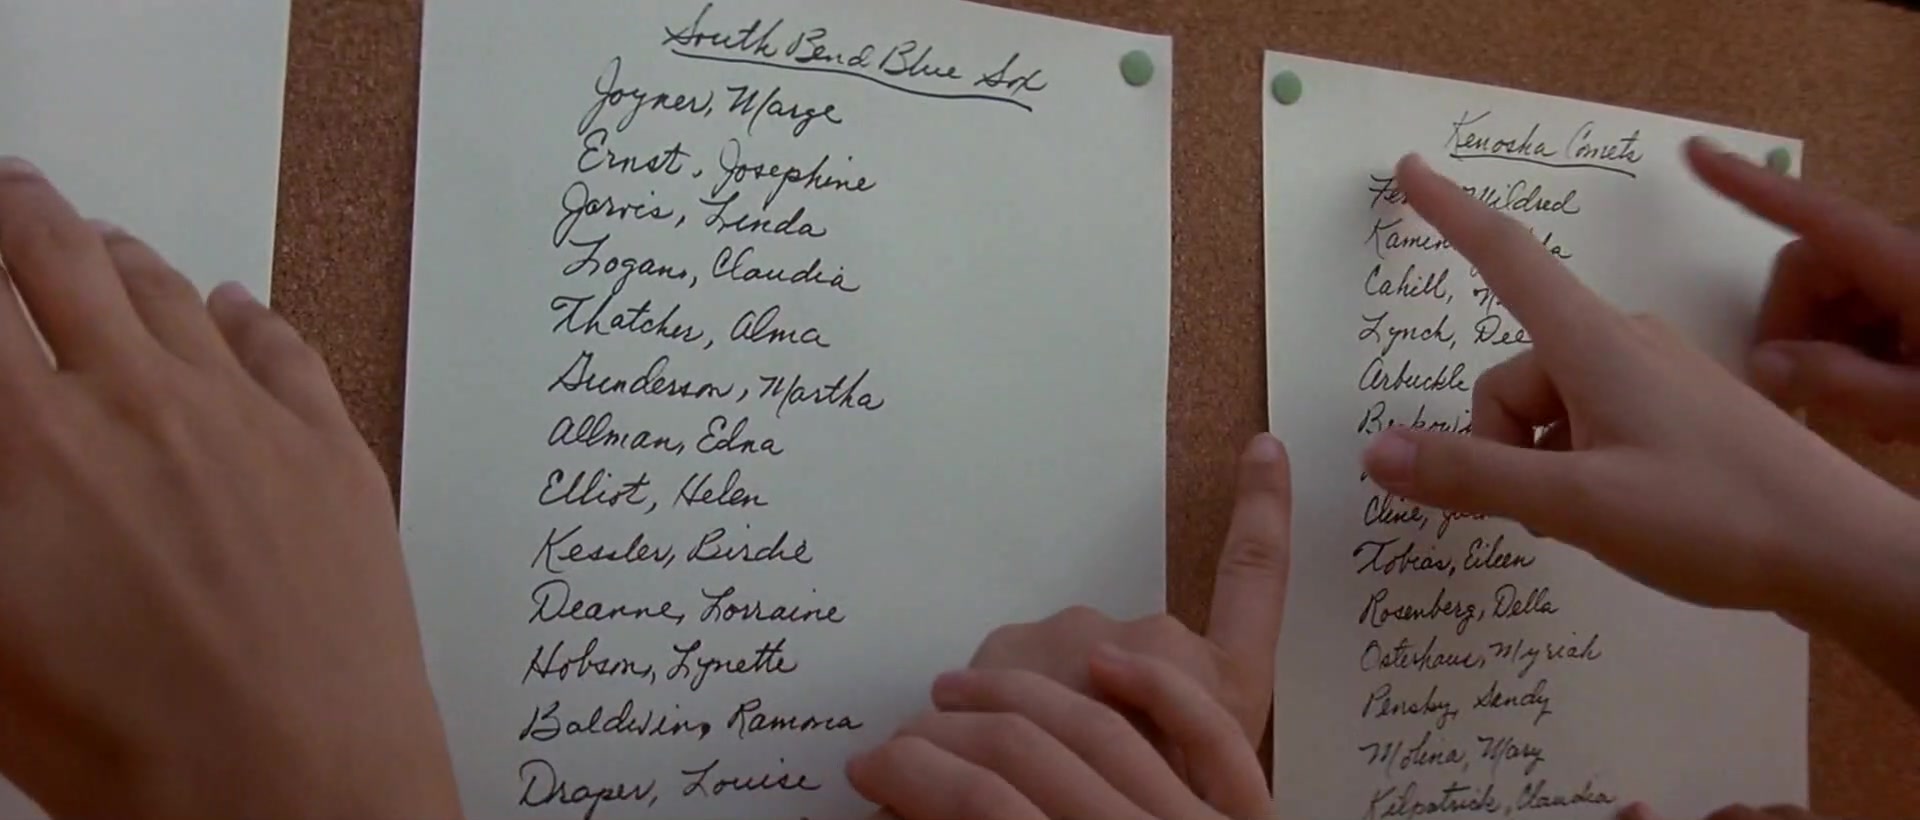 South Bend Blue Sox
Joyner, Marge
Ernst, Josephine
Jarvis, Linda
Logan, Claudia
Thatcher, Alma
Gunderson, Martha
Allman, Edna
Elliot, Helen
Kessler, Birdie
Deanne, Lorraine
Hobson, Lynette
Baldwin, Ramona
Draper, Louise
Kenosha Comets
Mildred
Cahill,
Lynch, Dee
Arbuckle
Cline,
Tobias, Eileen
Rosenberg, Della
Osterhaus, Myriah
Pensky, Sandy
Molina, Mary
Kilpatrick, Claudia